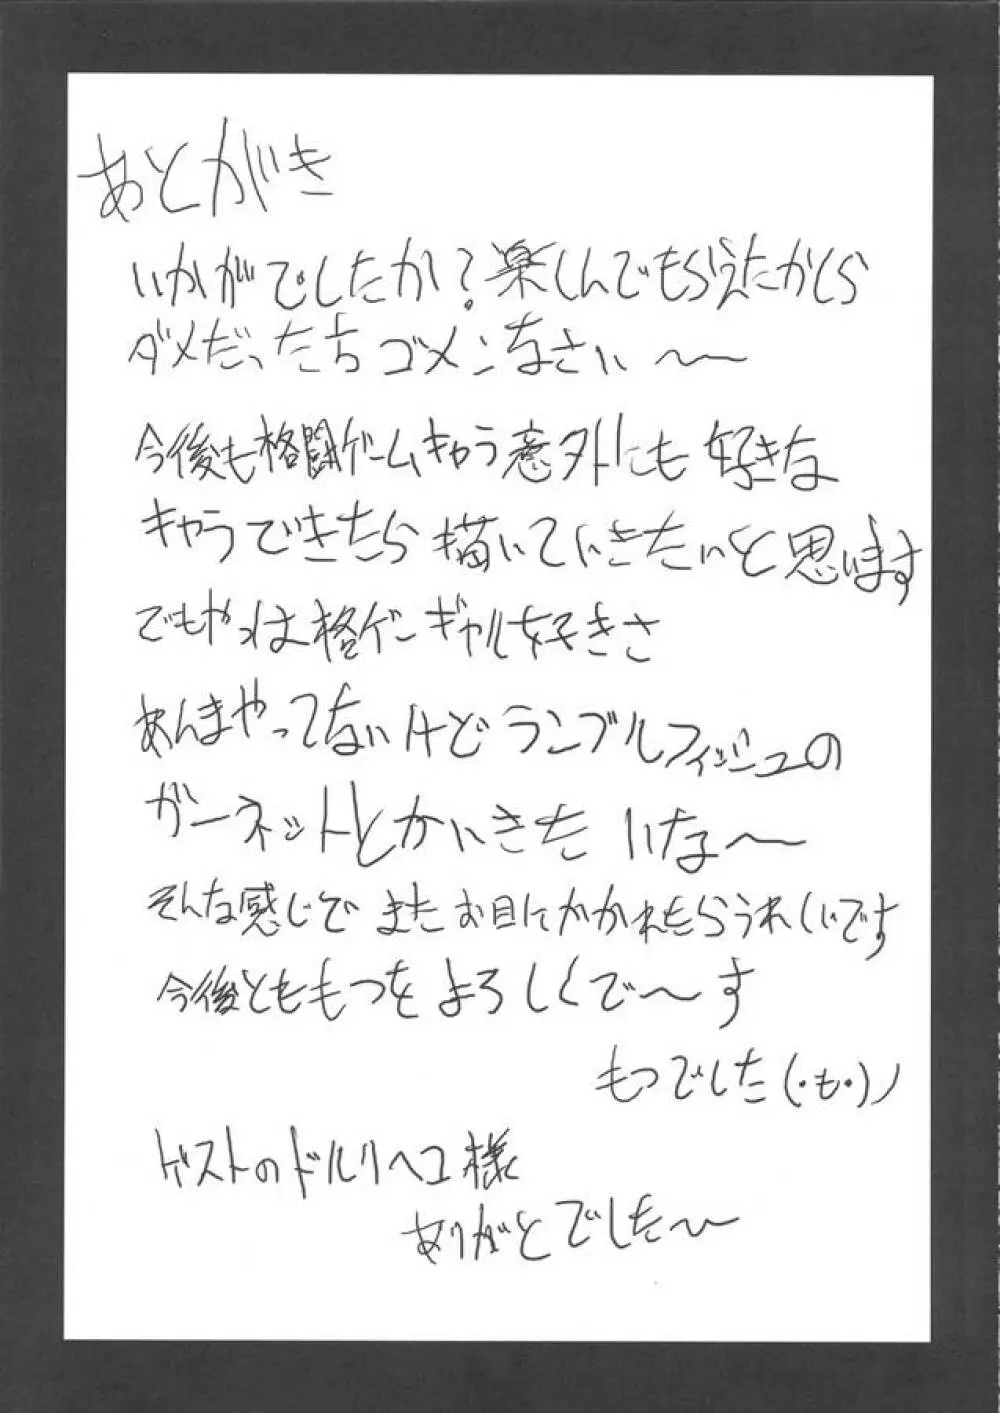 あとがき
いかがでしたか?楽しんでもらえたかしら
ダメだったらゴメンなさい〜
今後も格闘ゲームキャラ意外にも好きな
キャラできたら描いていきたいと思います
でもやっぱ格ゲーギャル好きさ
あんまやってないけどランブルフィッシュの
ガーネットとかにきたいな〜
そんな感じでまたお目にかかれたらうれしいです
今後とももつをよろしくで〜す
もつでした(・も・)ノ
ゲストのドルリヘユ様
ありがとでした〜